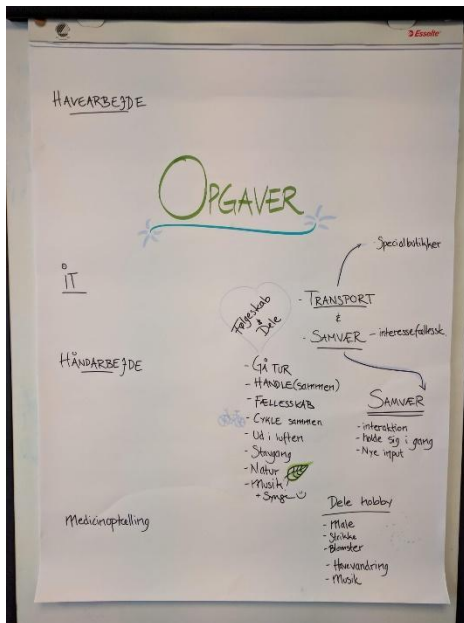 Esselte
HAVEARBEJDE
OPGAVER
Specialbutikker
IT
Følgeskab
&
Dele
- TRANSPORT
&
- SAMVÆR - interessefællessk.
HÅNDARBEJDE
- GÅ TUR
- HANDLE (sammen)
- FÆLLESSKAB
- CYKLE sammen
- Ud i luften
- Stavgang
- Natur
- Musik
- Synge
SAMVÆR
- interaktion
- holde sig i gang
- Nye input
Medicinoptælling
Dele hobby
- Male
- Strikke
- Blomster
- Havevandring
- Musik